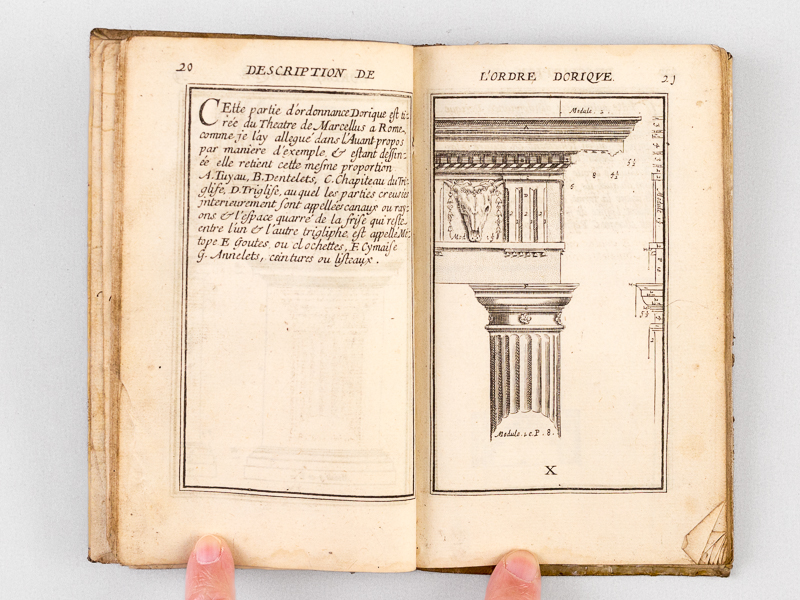 20
DESCRIPTION DE
CEtte partie d'ordonnance Dorique est ti-
rée du Theatre de Marcellus a Rome,
comme je l'ay allegué dans l'Auant-propos
par maniere d'exemple, & estant dessin-
ée elle retient cette mesme proportion
A. Tuyau, B. Dentelets, C. Chapiteau du Tri-
glife, D. Triglife, au quel les parties creusées
interieurement sont appellées canaux ou ray-
ons & l'espace quarré de la frise qui reste
entre l'un & l'autre trigliphe, est appellé Me-
tope E Goutes, ou clochettes, F. Cymaise
G. Annelets, ceintures ou listeaux.
L'ORDRE DORIQVE.
21
Module. 2.
A
6
8
4½
Mod
F
Module. 1. e. P. 8.
X